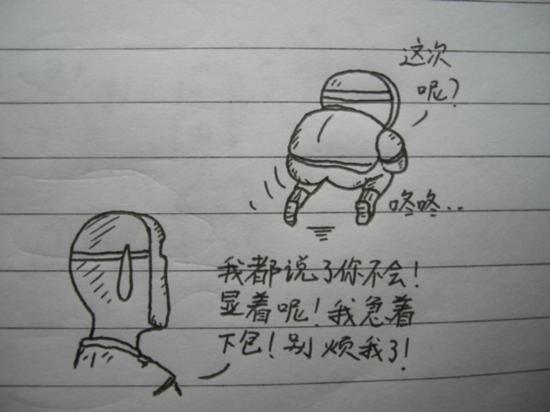 这次
呢?
咚咚..
我都说了你不会!
显着呢!我急着
下包!别烦我了!